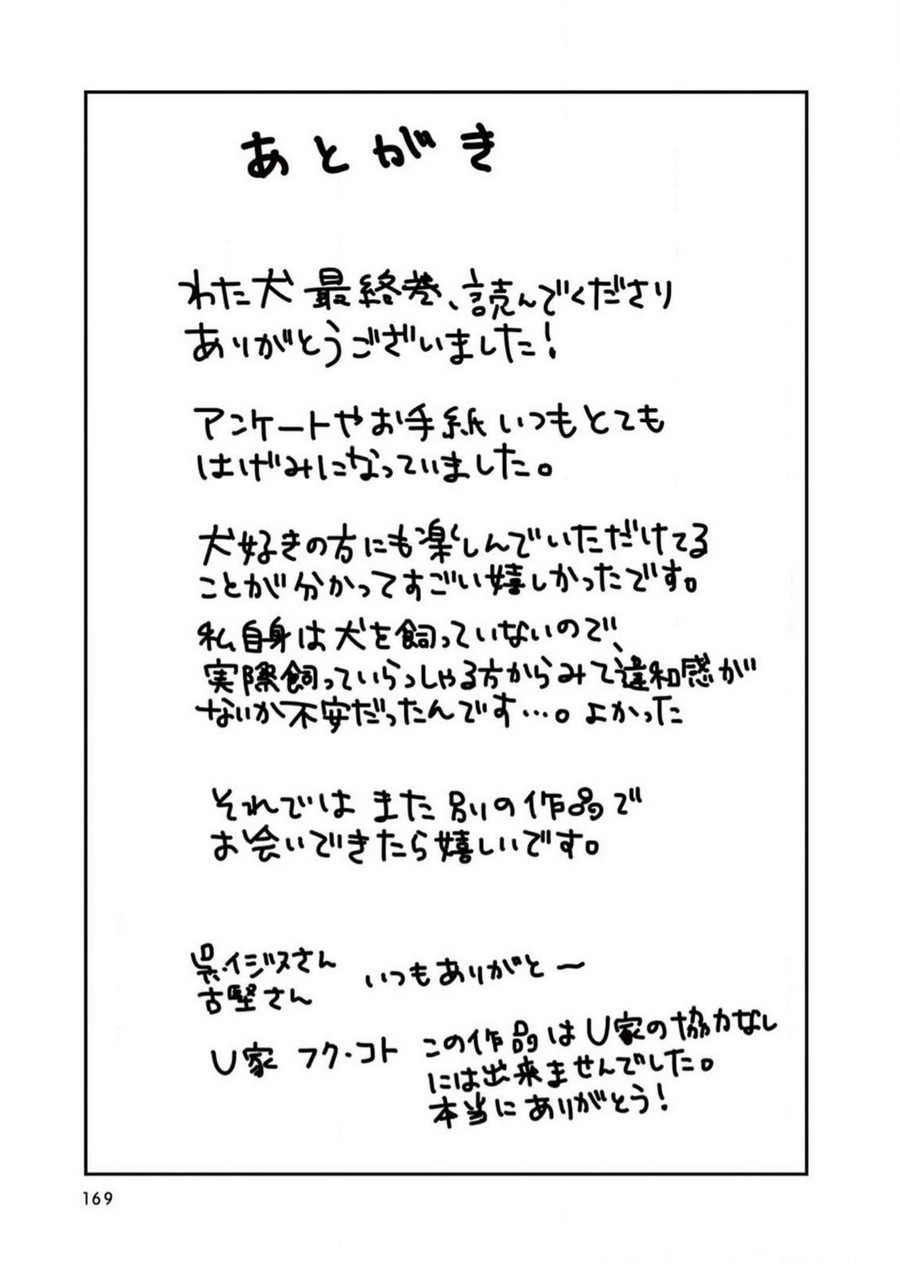 あとがき
わた犬 最終巻、読んでくださり
ありがとうございました!
アンケートやお手紙 いつもとても
はげみになっていました。
犬好きの方にも楽しんでいただけてる
ことが分かってすごい嬉しかったです。
私自身は犬を飼っていないので、
実際飼っていらっしゃる方からみて違和感が
ないか不安だったんです…。よかった
それでは また 別の作品で
お会いできたら嬉しいです。
呉・イジヌさん
古堅さん
いつもありがと〜
U家 フク・コト
この作品はU家の協力なし
には出来ませんでした。
本当にありがとう!
169